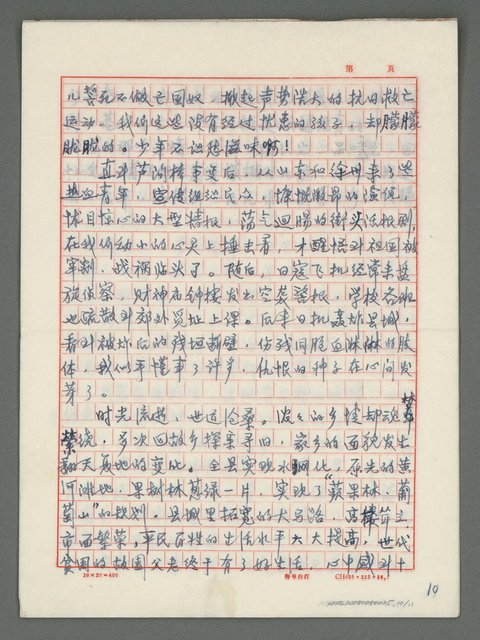 第 页
儿誓死不做亡国奴，掀起声势浩大的抗日救亡
运动。我们这些没有经过忧患的孩子，却朦朦
胧胧的。少年不识愁滋味啊！
直到芦沟桥事变后，从山东和徐州来了些
热血青年，宣传组织民众，慷慨激昂的演说，
怵目惊心的大型情报，荡气迴肠的街头活报剧，
在我们幼小的心灵上捶击着，才醒悟到祖国被
宰割，战祸临头了。随后，日寇飞机经常来盘
旋侦察，财神庙钟楼发出空袭警报，学校各班
也疏散到郊外员址上课。后来日机轰炸县城，
看到被炸后的残垣断壁，伤残同胞血淋淋的肢
体，我似乎懂事了许多，仇恨的种子在心间发
芽了。
时光流逝，世道沧桑。浓浓的乡情却魂牵梦
萦绕，多次回故乡探亲寻旧，家乡的面貌发生
翻天复地的变化。全县实现水网化，原先的黄
河滩地，果树林葱绿一片，实现了“苹果林、葡
萄山”的规划，县城里拓宽的大马路，高楼耸立，
市面繁荣，平民百姓的生活水平大大提高，世代
贫困的故园父老终于有了好生活，心中感到十
20×20=400
10